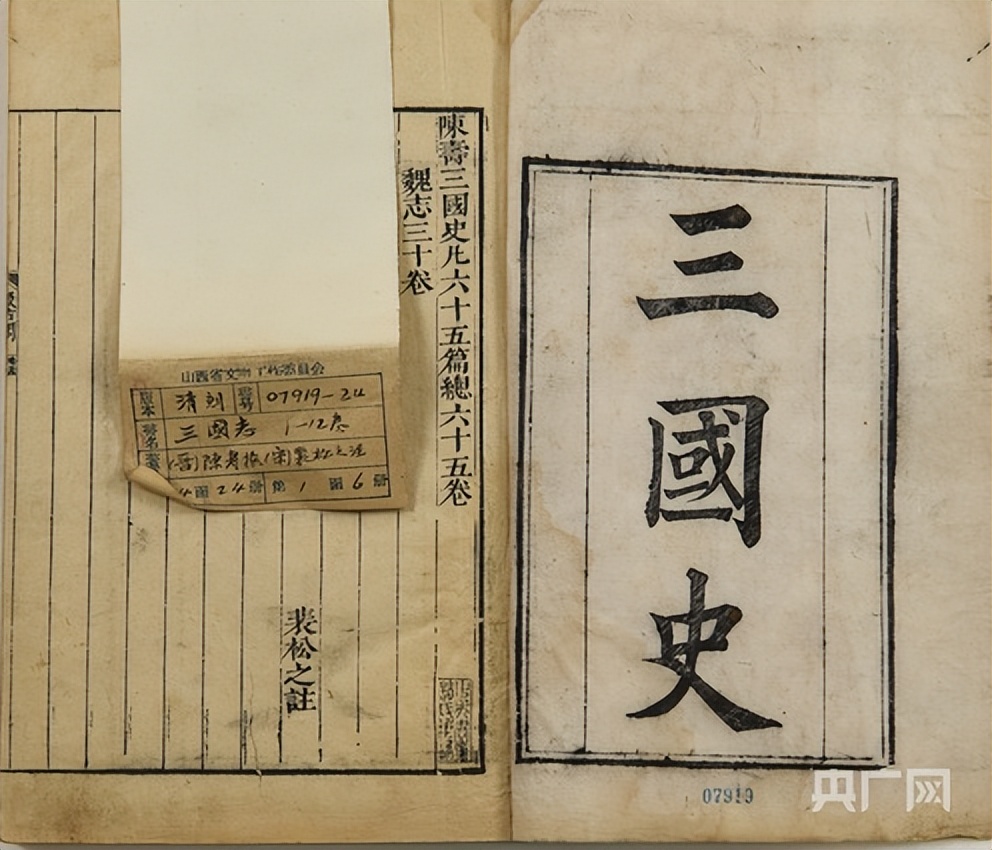 三國史
07919
央广网
陳壽三國史凡六十五篇總六十五卷
魏志三十卷
裴松之註
山西省文物工作委員会
版本 清刻 登号 07919-24
書名 三國志 1-12卷
(晋)陳寿撰(宋)裴松之注
4函24册 第1函6册